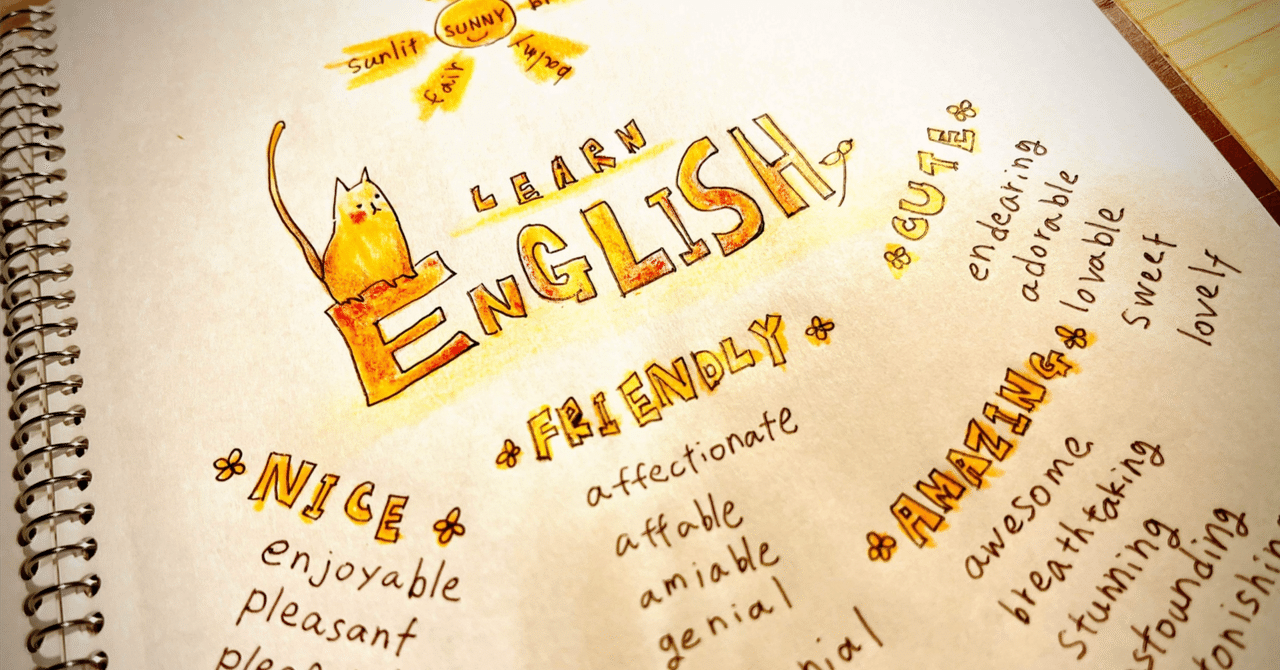 SUNNY
sunlit
fair
balmy
LEARN
ENGLISH
CUTE
endearing
adorable
lovable
sweet
lovely
FRIENDLY
affectionate
affable
amiable
genial
NICE
enjoyable
pleasant
AMAZING
awesome
breathtaking
stunning
stounding